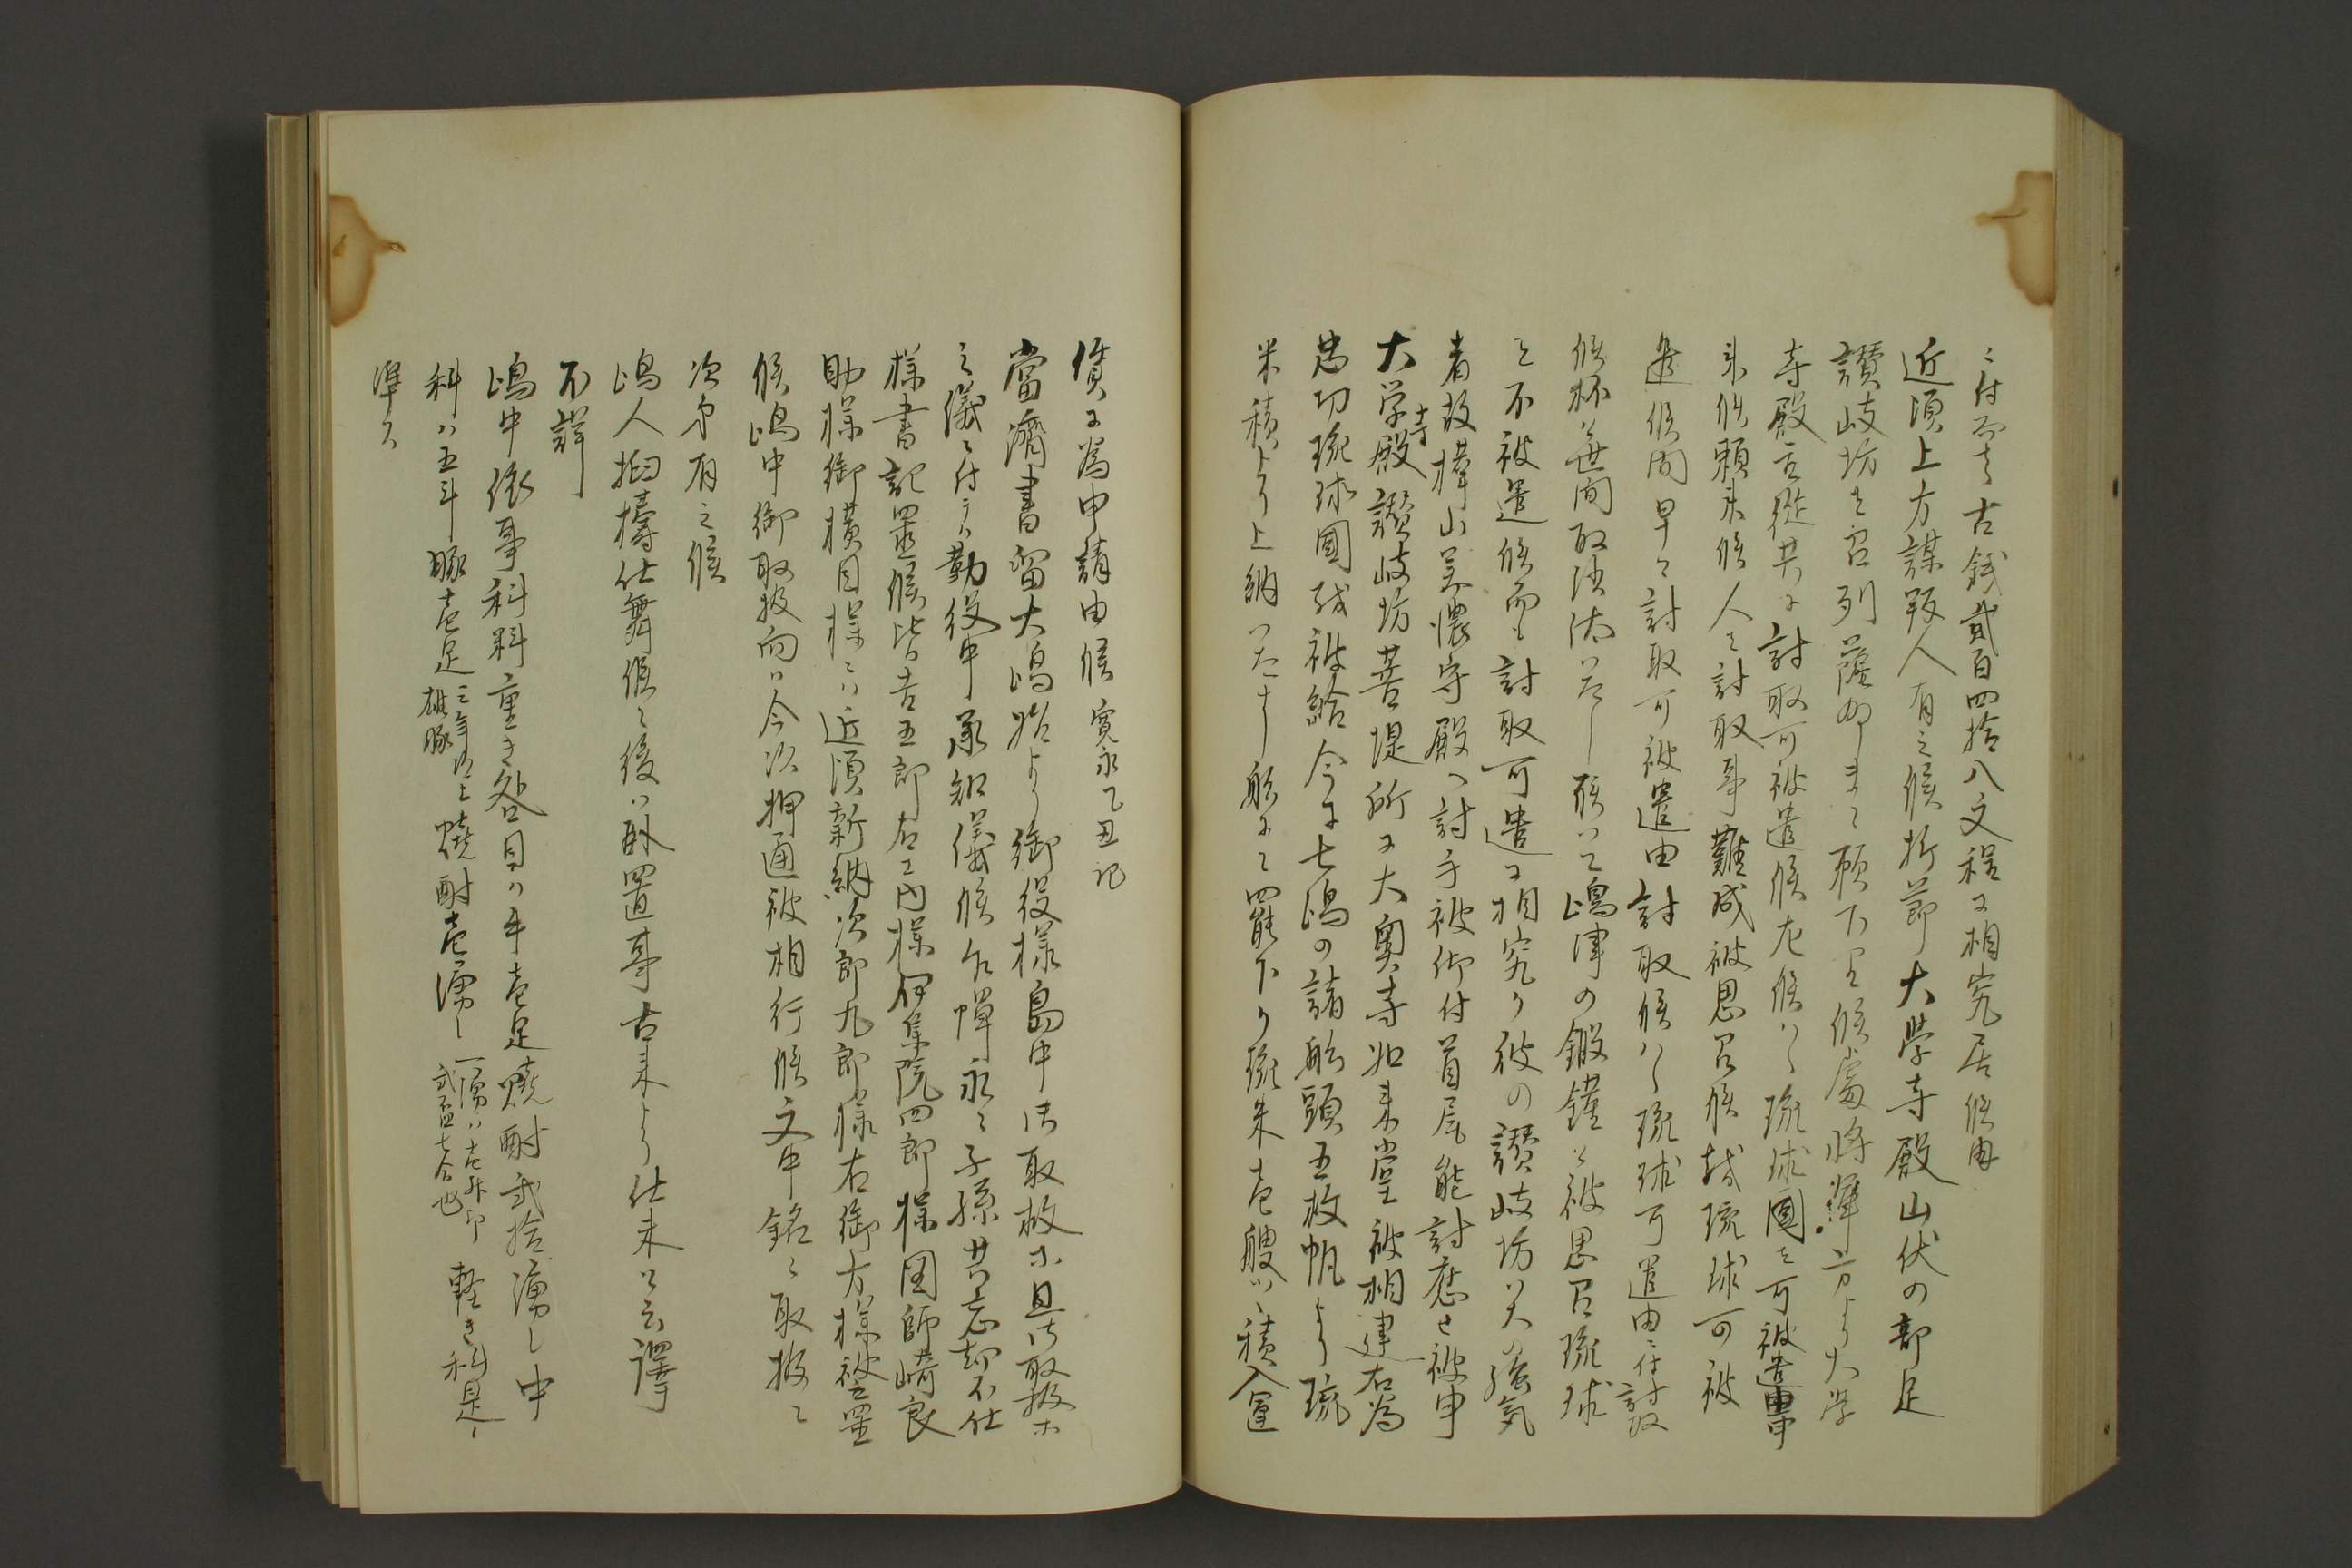 ニ付而者古銭貳百四拾八文程ニ相究居候由
近頃上方謀叛人有之候折節大学寺殿山伏の部足
讃岐坊を召列薩州まて願下り候處将軍方より大学
寺殿主従共に討取可被遣候左候ハヽ琉球國を可被遣由
来候頼来候人を討取事難成被思召候哉琉球可被
遣候間早々討取可被遣由討取候ハヽ琉球可遣由ニ付討取
候杯世間取沙汰いたし候ハて嶋津の鍛鑓と被思召琉球
を不被遣候而も討取可遣ニ相究り彼の讃岐坊ハ大強気
者故樺山美濃守殿へ討手被仰付首尾能討應せ被申
大学寺殿讃岐坊菩提所に大奥寺如来堂被相建右為
忠功琉球國致被給今ニ七嶋の諸船頭五枚帆より琉
米積より上納いたし船にて罷下り琉米壱艘ツヽ積入運
賃に為申請由候 寛永乙丑記
當濟書留大嶋始より御役様島中御取救等且御取扱等
之儀ニ付而ハ勤役中承知儀候乍憚永々子孫共忘却不仕
様書記置候皆吉五郎右エ門様伊集院四郎様圖師崎良
助様御横目様ニハ近頃新納次郎九郎様右御方様被召置
候嶋中御取扱向ハ今次押通被相行候文中銘々取扱之
次第有之候
嶋人搯擣仕舞候て後ハ酘置事古来より仕来と云譯
不詳
嶋中依事科料重き咎目ハ牛壱疋焼酎弐拾湧し中
科ハ五斗豚壱疋 三年以上雄豚 焼酎壱湧し 一湧ハ壱升即弐盃七合也 軽き科是ニ
準ス